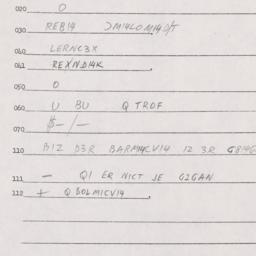 020 0
030 REB14 DM14LOM14D/T
040 LERNC3X
041 REXND14K
050 0
060 U BU Q TROF
070 $-/-
110 B1Z D3R BARM14CV14 12 3R
111 - Q1 ER NICT JE G2GAN
112 + Q BOLM1CV14